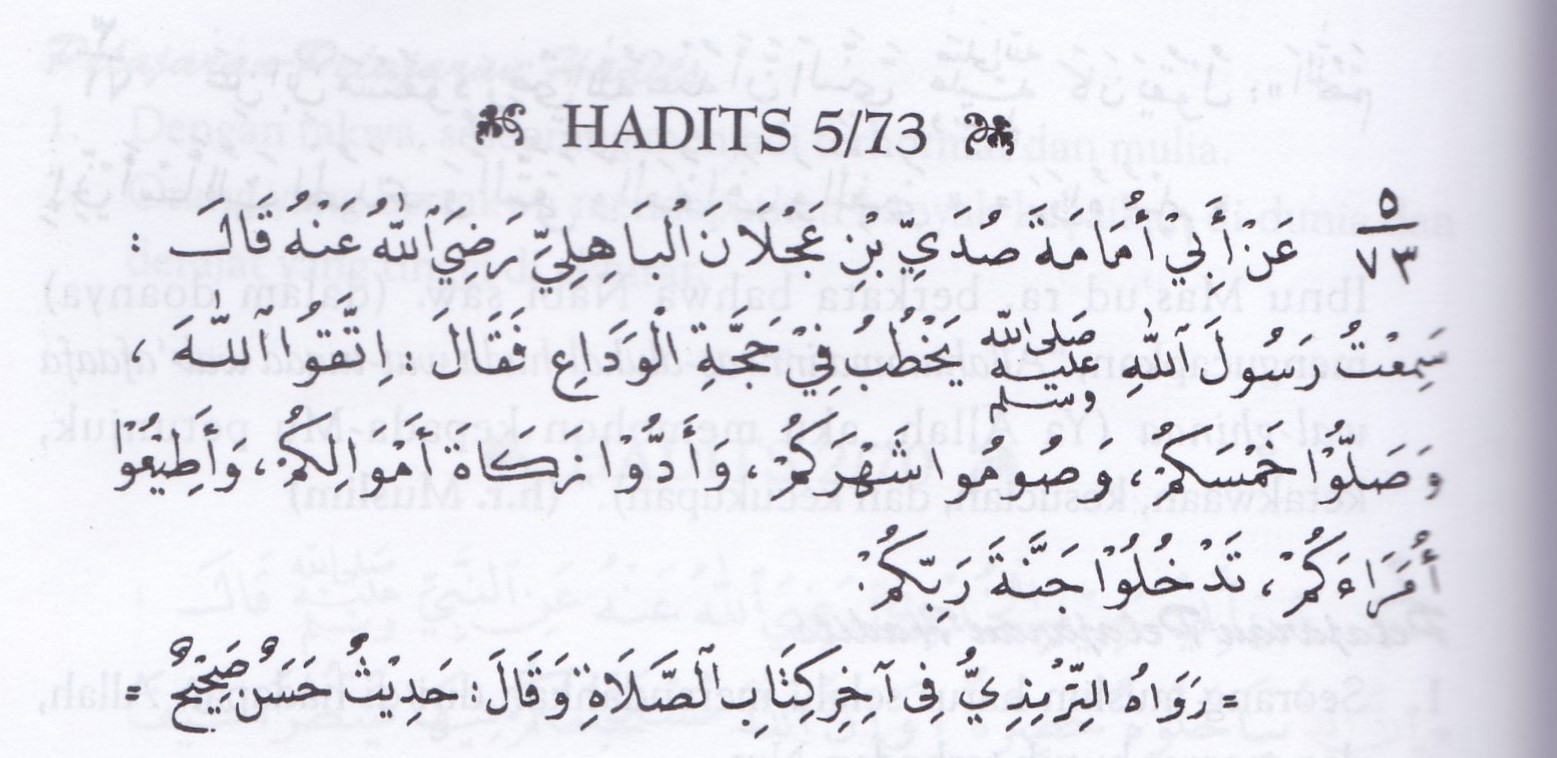 HADITS 5/73
٥
٧٣
عَنْ أَبِيْ أُمَامَةَ صُدَيِّ بْنِ عَجْلَانَ الْبَاهِلِيِّ رَضِيَ اللّٰهُ عَنْهُ قَالَ :
سَمِعْتُ رَسُولَ اللّٰهِ صلى الله عليه وسلم يَخْطُبُ فِيْ حَجَّةِ الْوَدَاعِ فَقَالَ : اِتَّقُوا اللّٰهَ ،
وَصَلُّوْا خَمْسَكُمْ ، وَصُومُو اشَهْرَكُمْ ، وَأَدُّوْا زَكَاةَ أَمْوَالِكُمْ ، وَأَطِيْعُوْا
أُمَرَاءَكُمْ ، تَدْخُلُوْا جَنَّةَ رَبِّكُمْ .
= رَوَاهُ التِّرْمِذِيُّ فِي آخِرِ كِتَابِ الصَّلَاةِ وَقَالَ : حَدِيْثٌ حَسَنٌ صَحِيْحٌ =